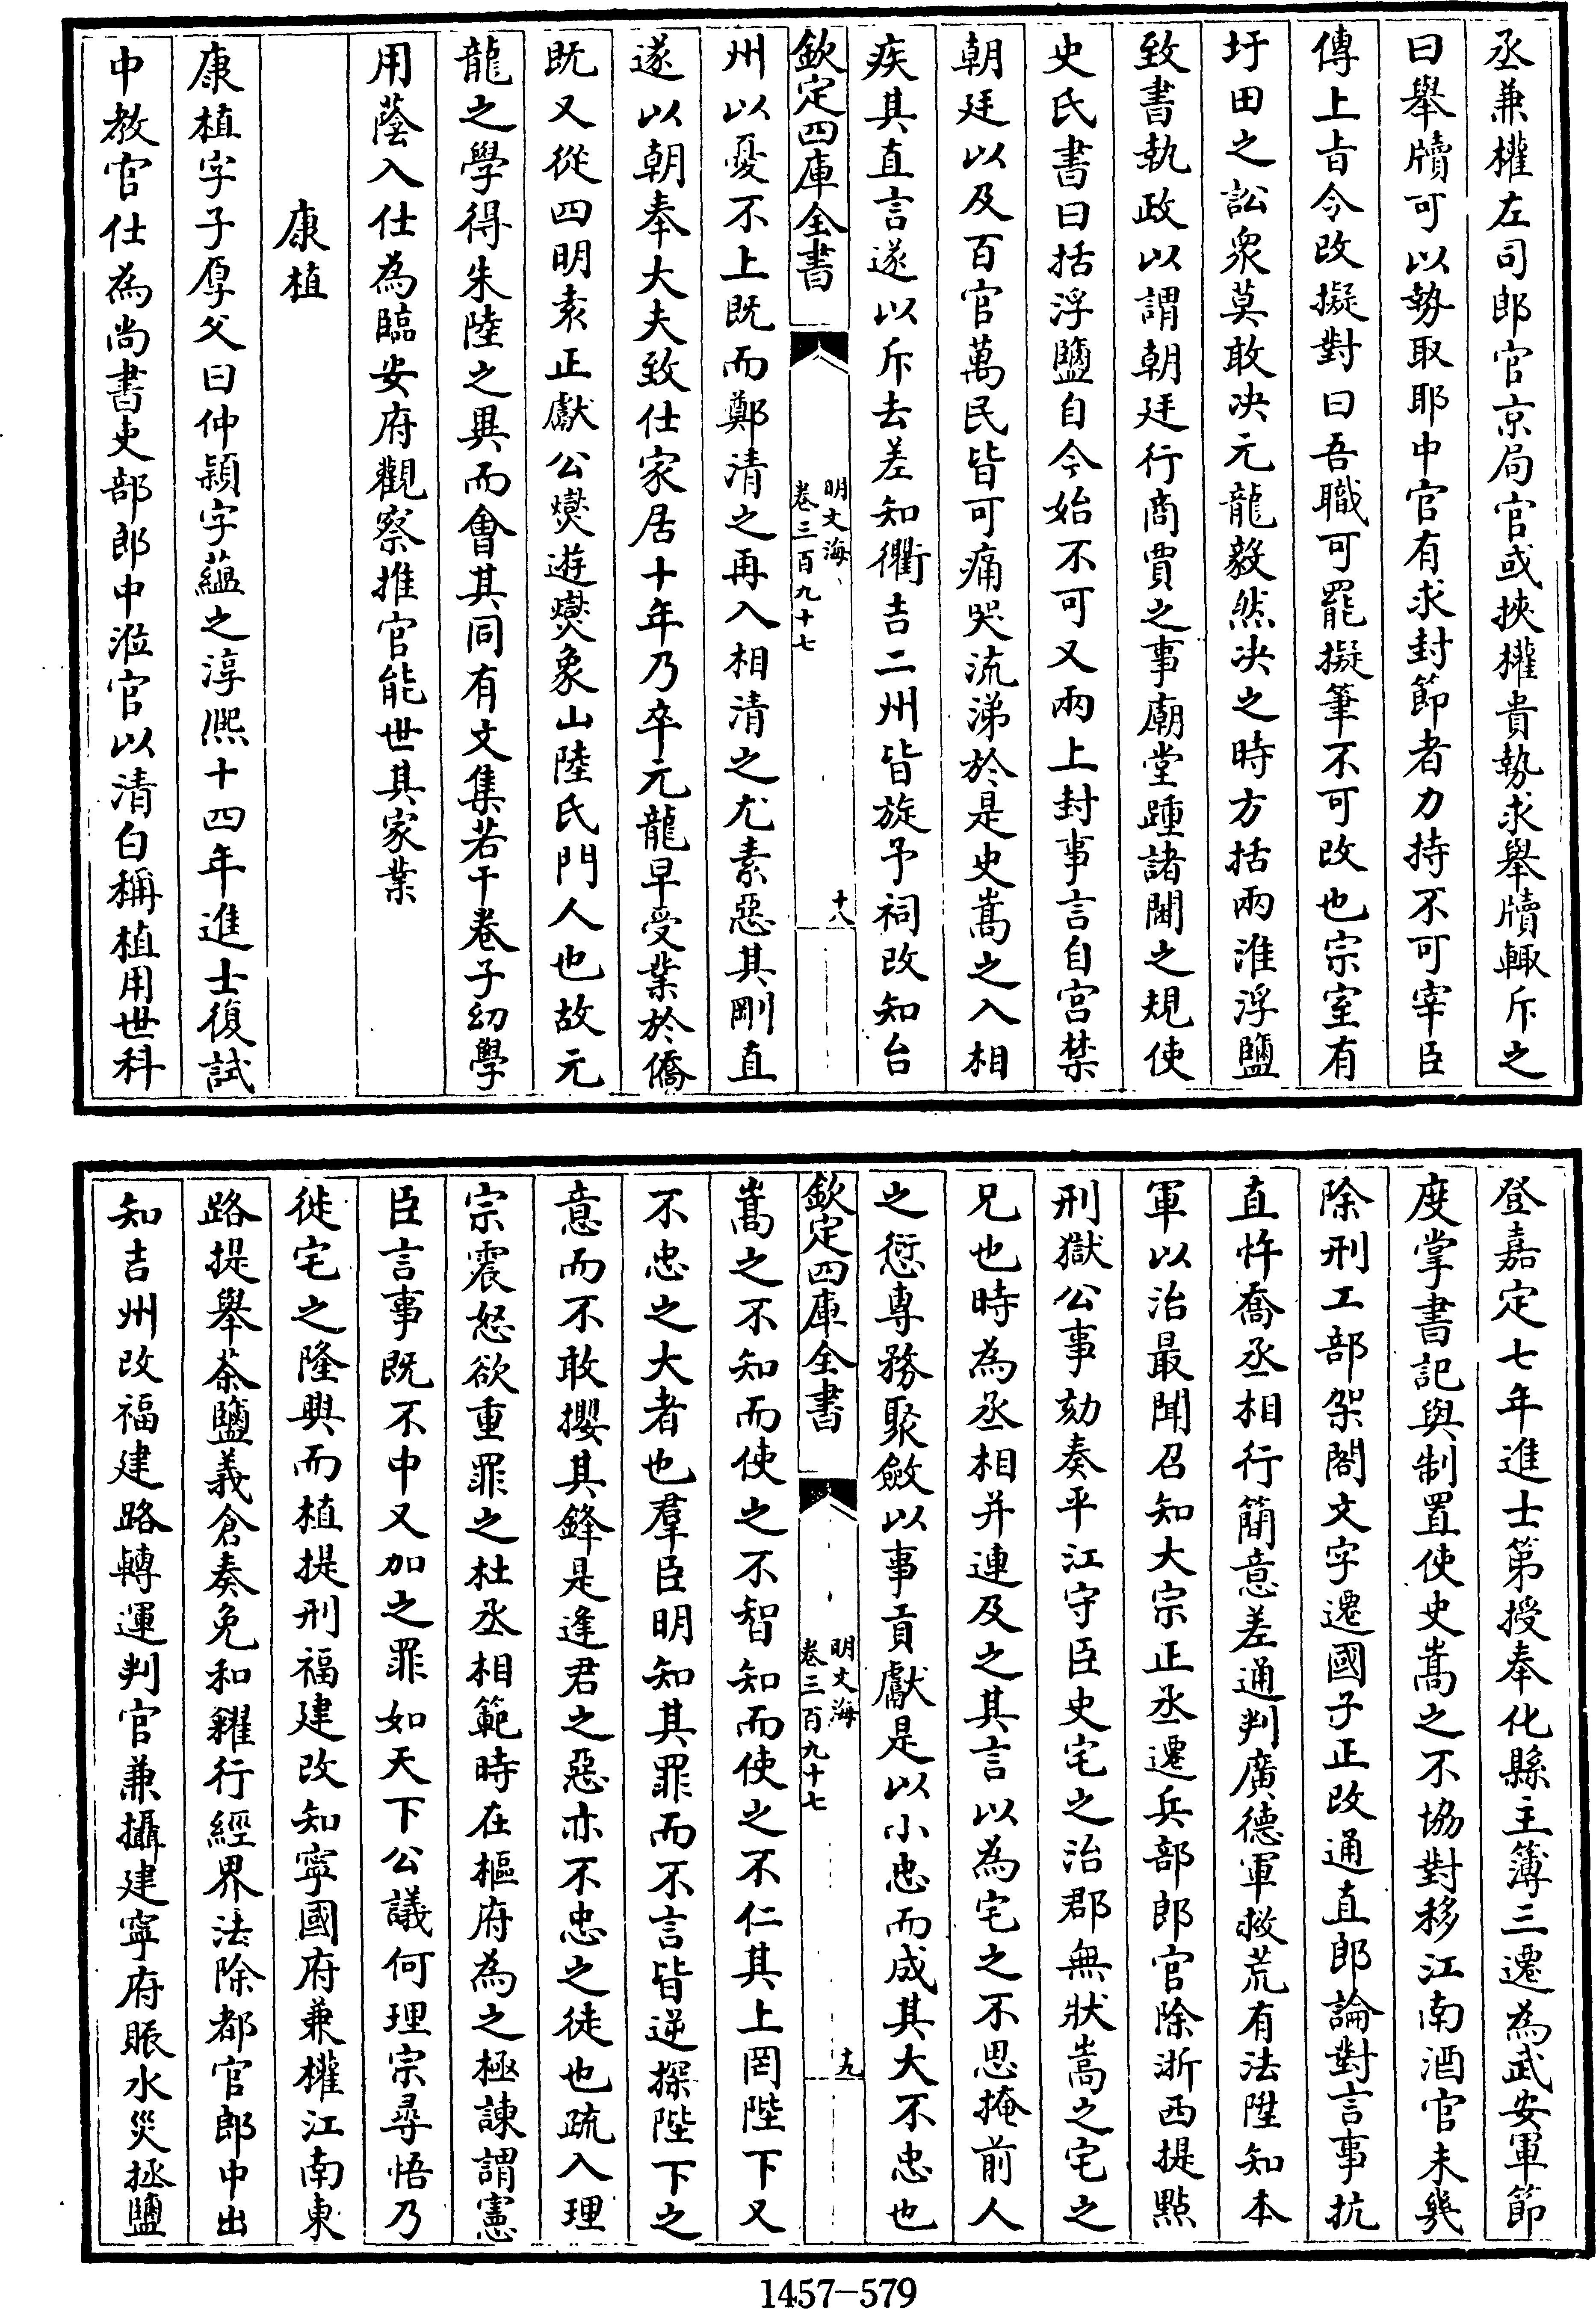 丞兼權左司郎官京局官或挾權貴勢求舉牘輙斥之
曰舉牘可以勢取耶中官有求封節者力持不可宰臣
傳上㫖令改擬對曰吾職可罷擬筆不可改也宗室有
圩田之訟衆莫敢决元龍毅然决之時方括兩淮浮鹽
致書執政以謂朝廷行商賈之事廟堂踵諸閫之規使
史氏書曰括浮鹽自今始不可又兩上封事言自宫禁
朝廷以及百官萬民皆可痛哭流涕於是史嵩之入相
疾其直言遂以斥去差知衢吉二州皆旋予祠改知台
欽定四庫全書
明文海
卷三百九十七
十八
州以憂不上既而鄭清之再入相清之尤素惡其剛直
遂以朝奉大夫致仕家居十年乃卒元龍早受業於僑
既又從四明袁正獻公燮遊燮象山陸氏門人也故元
龍之學得朱陸之異而會其同有文集若干卷子幻學
用蔭入仕為臨安府觀察推官能世其家業
康植
康植字子厚父曰仲頴字蘊之淳熙十四年進士復試
中教官仕為尚書吏部郎中涖官以清白稱植用世科
登嘉定七年進士第授奉化縣主簿三遷為武安軍節
度掌書記與制置使史嵩之不協對移江南酒官未幾
除刑工部架閣文字遷國子正改通直郎論對言事抗
直忤喬丞相行簡意差通判廣德軍救荒有法陞知本
軍以治最聞召知大宗正丞遷兵部郎官除浙西提點
刑獄公事劾奏平江守臣史宅之治郡無狀嵩之宅之
兄也時為丞相并連及之其言以為宅之不思掩前人
之愆專務聚斂以事貢獻是以小忠而成其大不忠也
欽定四庫全書
明文海
卷三百九十七
十九
嵩之不知而使之不智知而使之不仁其上罔陛下又
不忠之大者也羣臣明知其罪而不言皆逆探陛下之
意而不敢攖其鋒是逢君之惡亦不忠之徒也疏入理
宗震怒欲重罪之杜丞相範時在樞府為之極諫謂憲
臣言事既不中又加之罪如天下公議何理宗尋悟乃
徙宅之隆興而植提刑福建改知寧國府兼權江南東
路提舉茶鹽義倉奏免和糴行經界法除都官郎中出
知吉州改福建路轉運判官兼攝建寧府賑水災拯鹽
1457-579